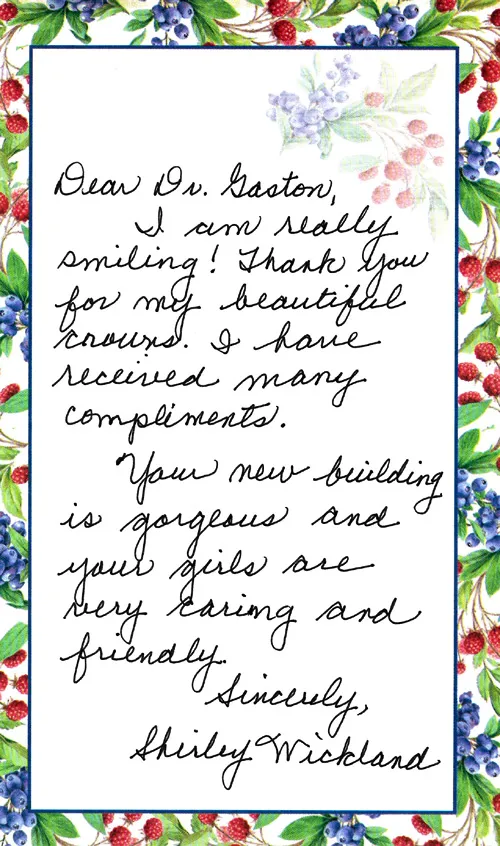 Dear Dr. Gaston,
I am really
smiling! Thank you
for my beautiful
crowns. I have
received many
compliments.
Your new building
is gorgeous and
your girls are
very caring and
friendly.
Sincerely,
Shirley Wickland